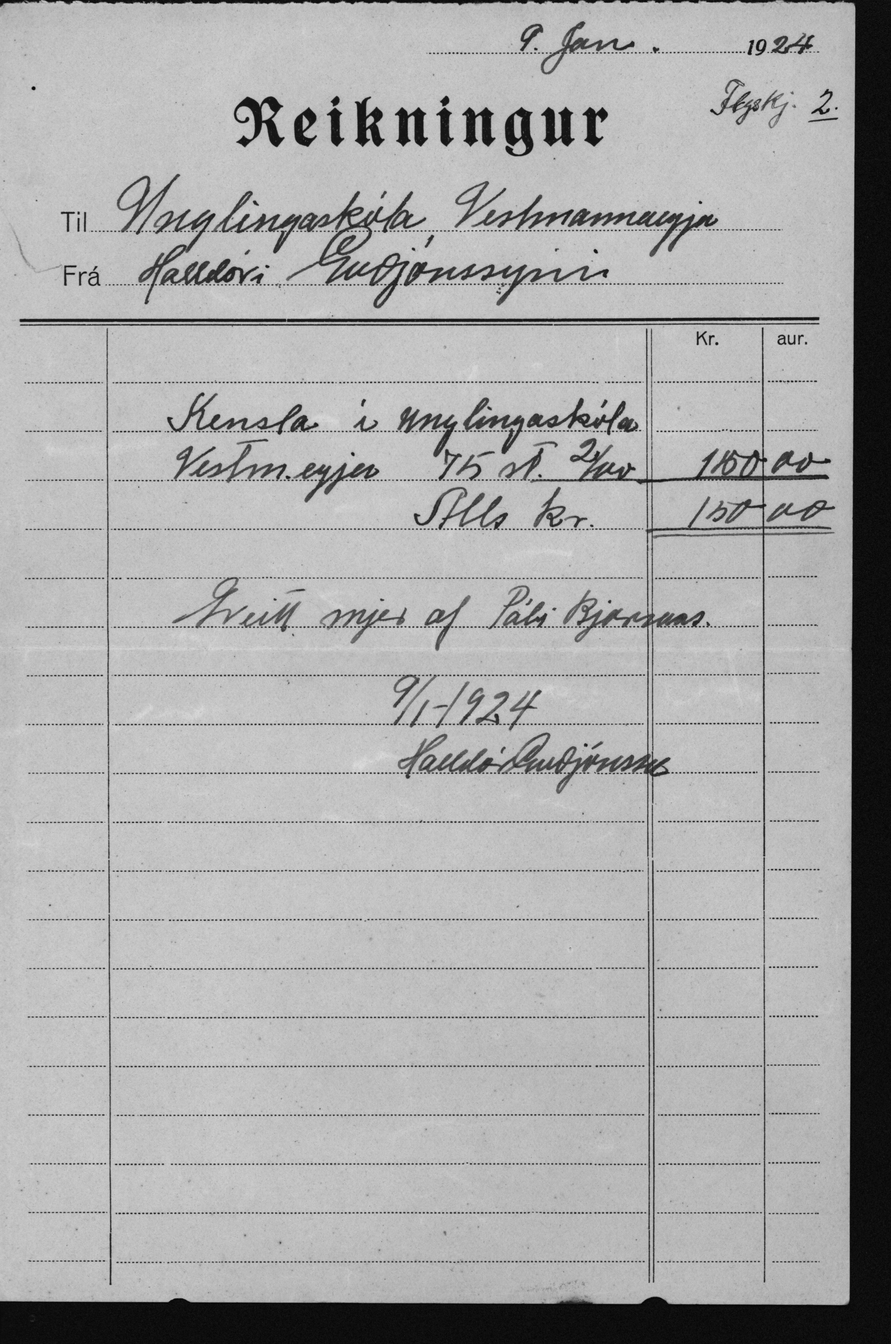 9. Jan. 1924
Flgskj. 2.
Reikningur
Til Unglingaskóla Vestmannaeyja
Frá Halldóri Guðjónssyni
Kr. aur.
Kensla í unglingaskóla
Vestm.eyja 75 st. 2/00 150 00
Alls kr. 150 00
Greitt mjer af Páli Bjarnas.
9/1-1924
Halldór Guðjónsson